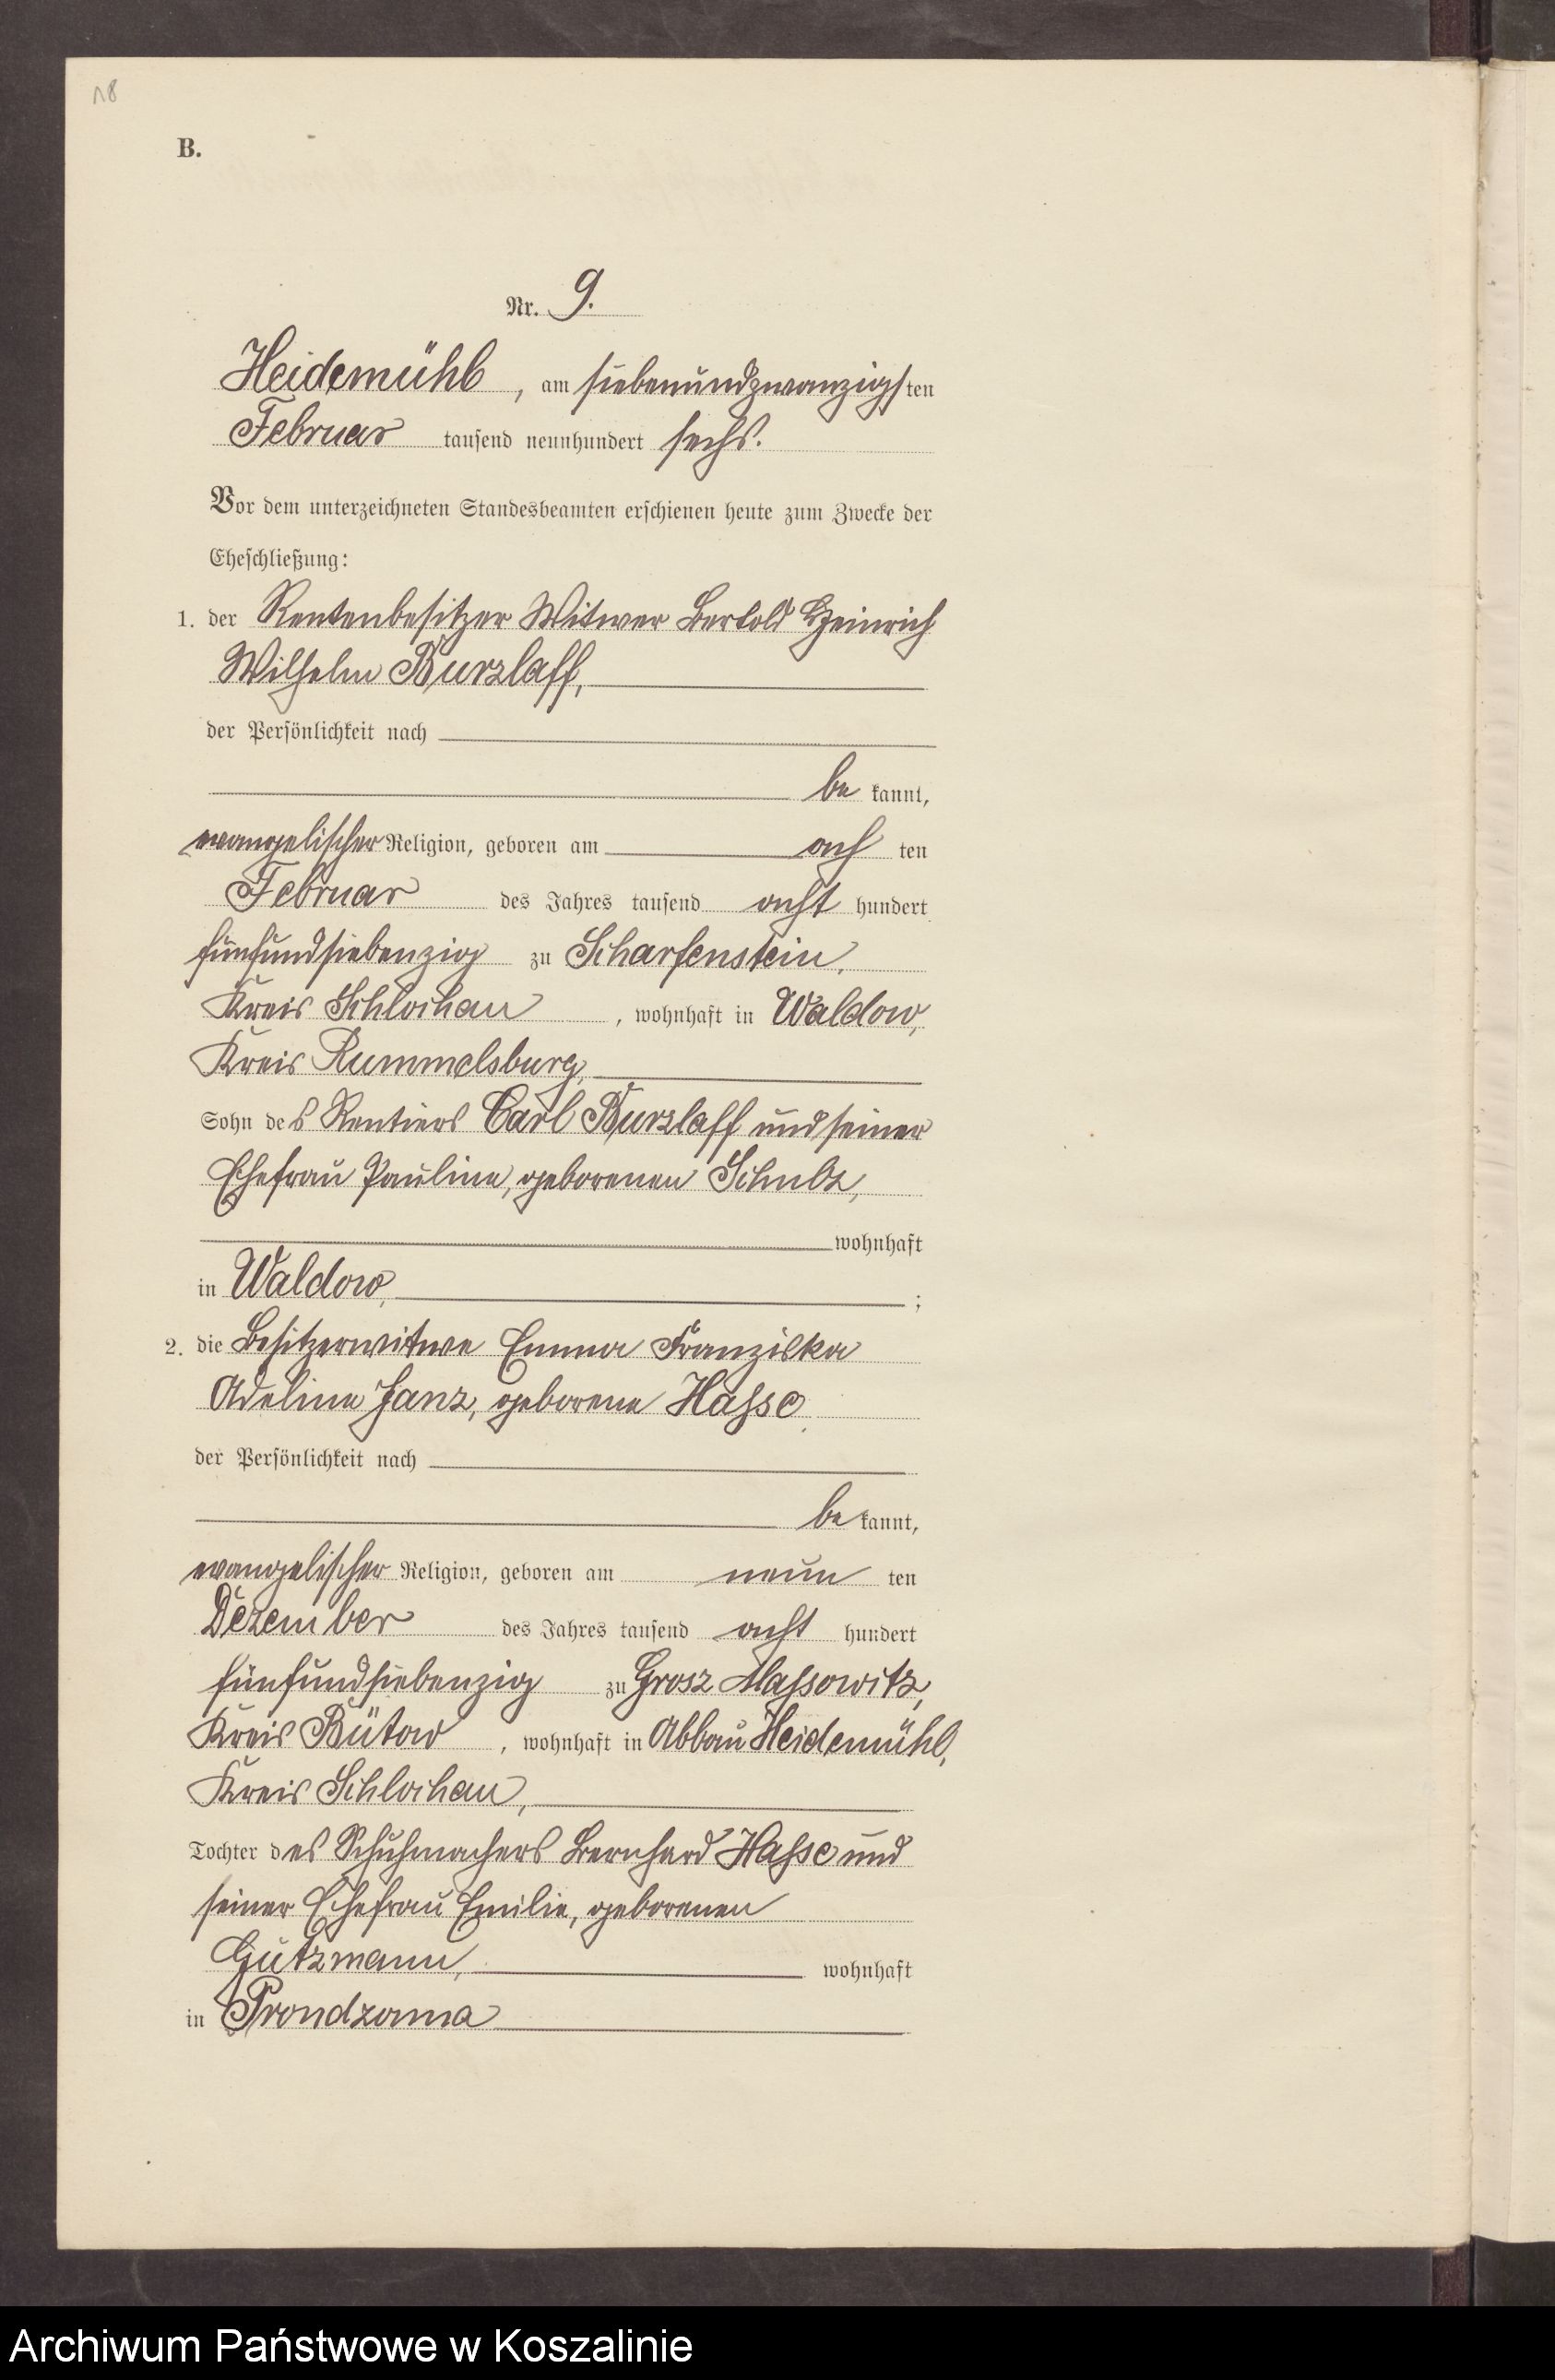 18
B.
Nr. 9.
Heidemühl, am siebenundzwanzigsten
Februar tausend neunhundert sechs.
Vor dem unterzeichneten Standesbeamten erschienen heute zum Zwecke der
Eheschließung:
1. der Rentenbesitzer Witwer Bertold Heinrich
Wilhelm Burzlaff,
der Persönlichkeit nach
be kannt,
evangelischer Religion, geboren am ach ten
Februar des Jahres tausend acht hundert
fünfundsiebenzig zu Scharfenstein,
Kreis Schlochau, wohnhaft in Waldow,
Kreis Rummelsburg,
Sohn des Rentiers Carl Burzlaff und seiner
Ehefrau Pauline, geborenen Schulz,
wohnhaft
in Waldow, ;
2. die Besitzerwitwe Emma Franziska
Adeline Janz, geborene Hasse,
der Persönlichkeit nach
be kannt,
evangelischer Religion, geboren am neun ten
Dezember des Jahres tausend acht hundert
fünfundsiebenzig zu Grosz Massowitz,
Kreis Bütow, wohnhaft in Abbau Heidemühl,
Kreis Schlochau,
Tochter des Schuhmachers Bernhard Hasse und
seiner Ehefrau Emilie, geborenen
Gutzmann, wohnhaft
in Prondzonna
Archiwum Państwowe w Koszalinie